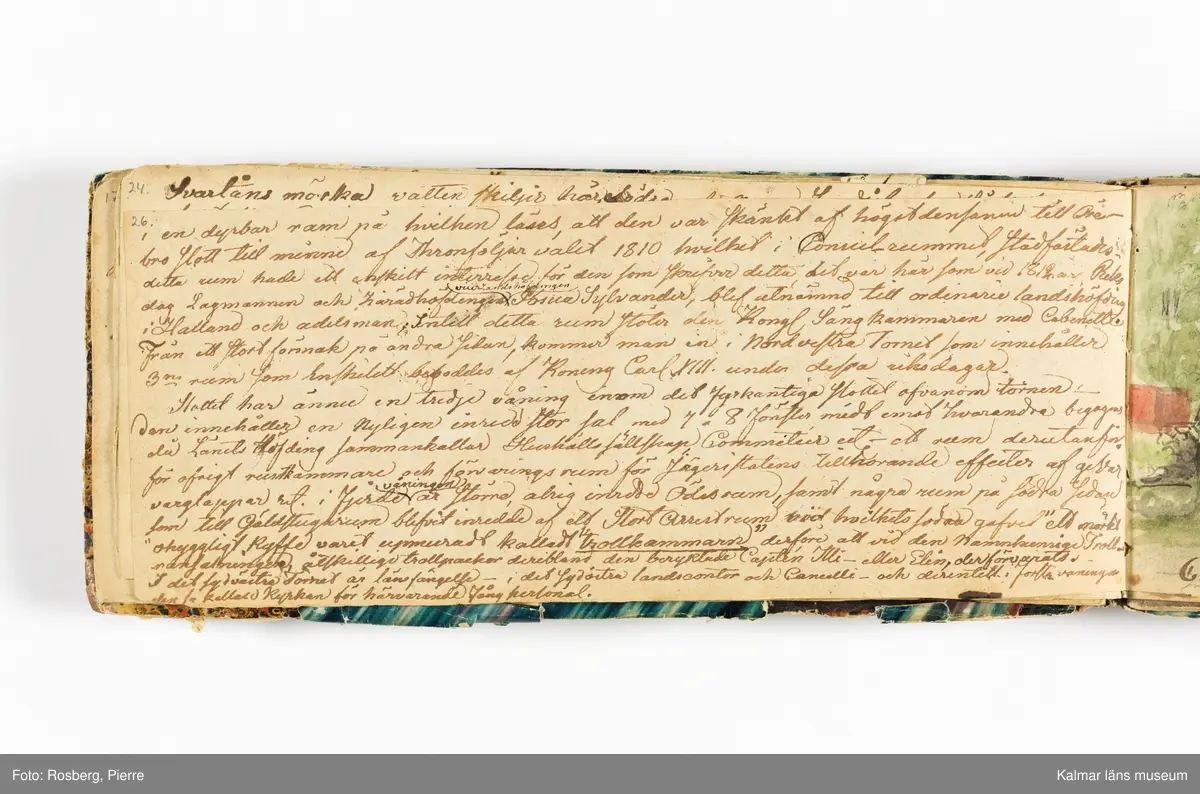 24. Svartåns mörka vatten skiljer här södra
26. i en dyrbar ram på hvilken läses, att den var skänkt af högstdensamme till Öre-
bro Slott till minne af Thronföljar valet 1810 hvilket i Conseil rummet, Stadfästades
detta rum hade ett enskilt intresse för den som skrifver detta det var här som vid 1812 års Riks
dag Lagmannen och Häradhöfdingen Sylvander, blef utnämnd till ordenarie landshöfding
vice landshöfdingen
i Halland och adelsman; Intill detta rum stöter den Kongl Sängkammaren med Cabinett.
Från ett stort förmak på andra sidan, kommer man in i Nordvestra Tornet som innehåller
3ne rum som Enskildt beboddes af Konung Carl XIII. under dessa riksdagar.
Slottet har ännu en tredje våning enom det fyrkantiga slottet ofvanom tornen -
Den innehåller en nyligen inredd stor sal med 7 a 8 fönster midt emot hvarandra begagnas
då Länets Höfding sammankallar Hushålls sällskap Committeer ect - ett rum derutanför
för öfrigt rustkammare och förvarings rum för Jägeristatens tillhörande effecter af gevär
varglappar ect. i fjerde våningen är större, aldrig inredde Ödesrum, samt några rum på södra sidan
som till Gäldstugurum blifvit inredde af ett stort arrestrum, vid hvilkets södra gafvel "ett mörkt
ohyggligt kyffe varit uppmuradt kalladt "trollkammarn" derföre att vid den namnkunnige Troll-
ransakningen, åtskillige trollpackor deribland den beryktade Capten Elli - eller Elin, derförvarats.
I det sydvästra Tornet är länsfängelse - i det Sydöstra landscontor och Cancelli - och derintill i första våningen
den så kallade Kyrkan för härvarande fångpersonal.
Foto: Rosberg, Pierre
Kalmar läns museum